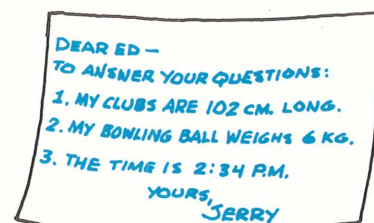 DEAR ED —
TO ANSWER YOUR QUESTIONS:
1. MY CLUBS ARE 102 CM. LONG.
2. MY BOWLING BALL WEIGHS 6 KG.
3. THE TIME IS 2:34 P.M.
YOURS,
JERRY